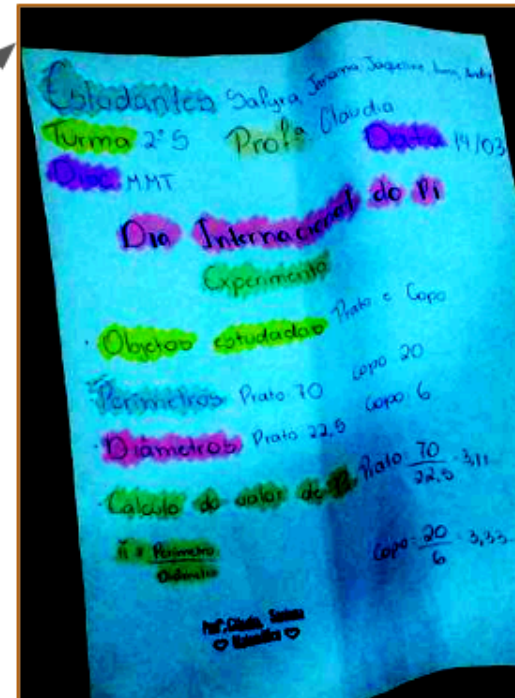 Estudantes Safyra, Janaina, Jaqueline,
Turma 2º S Profª Claudia Data 14/03
Disc MMT
Dia Internacional do Pi
Experimento
· Objetos estudados Prato e Copo
Perímetros Prato 70 Copo 20
· Diâmetros Prato 22,5 Copo 6
· Calculo do valor de Pi Prato: 70/22,5 = 3,11
π = Perímetro/Diâmetro Copo: 20/6 = 3,33...
Profª. Cláudia Santana
♡ Matemática ♡